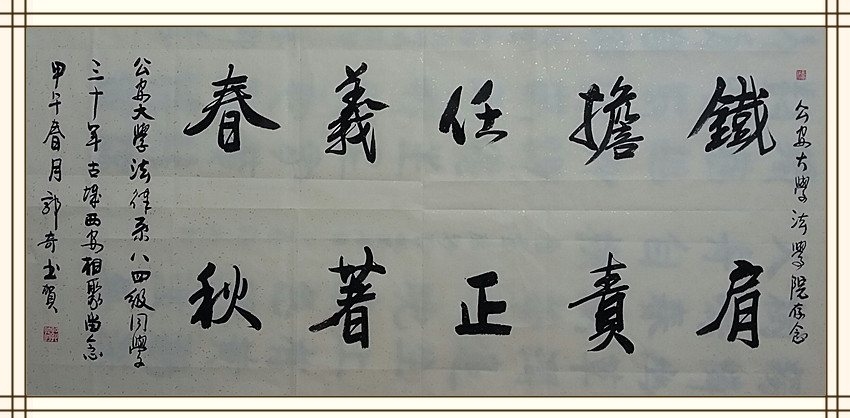 公安大學法學院存念
鐵肩
擔責
任正
義著
春秋
公安大學法律系八四級同學
三十年古城西安相聚留念
甲午春月郭奇书贺